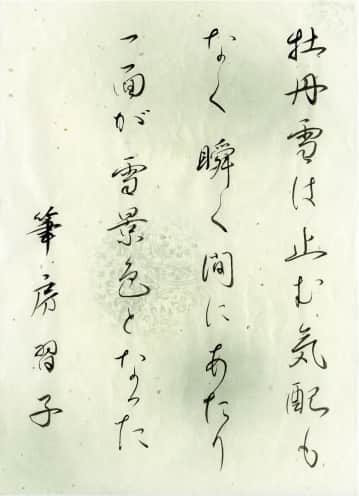 牡丹雪は止む気配も
なく瞬く間にあたり
一面が雪景色となった
筆房習子